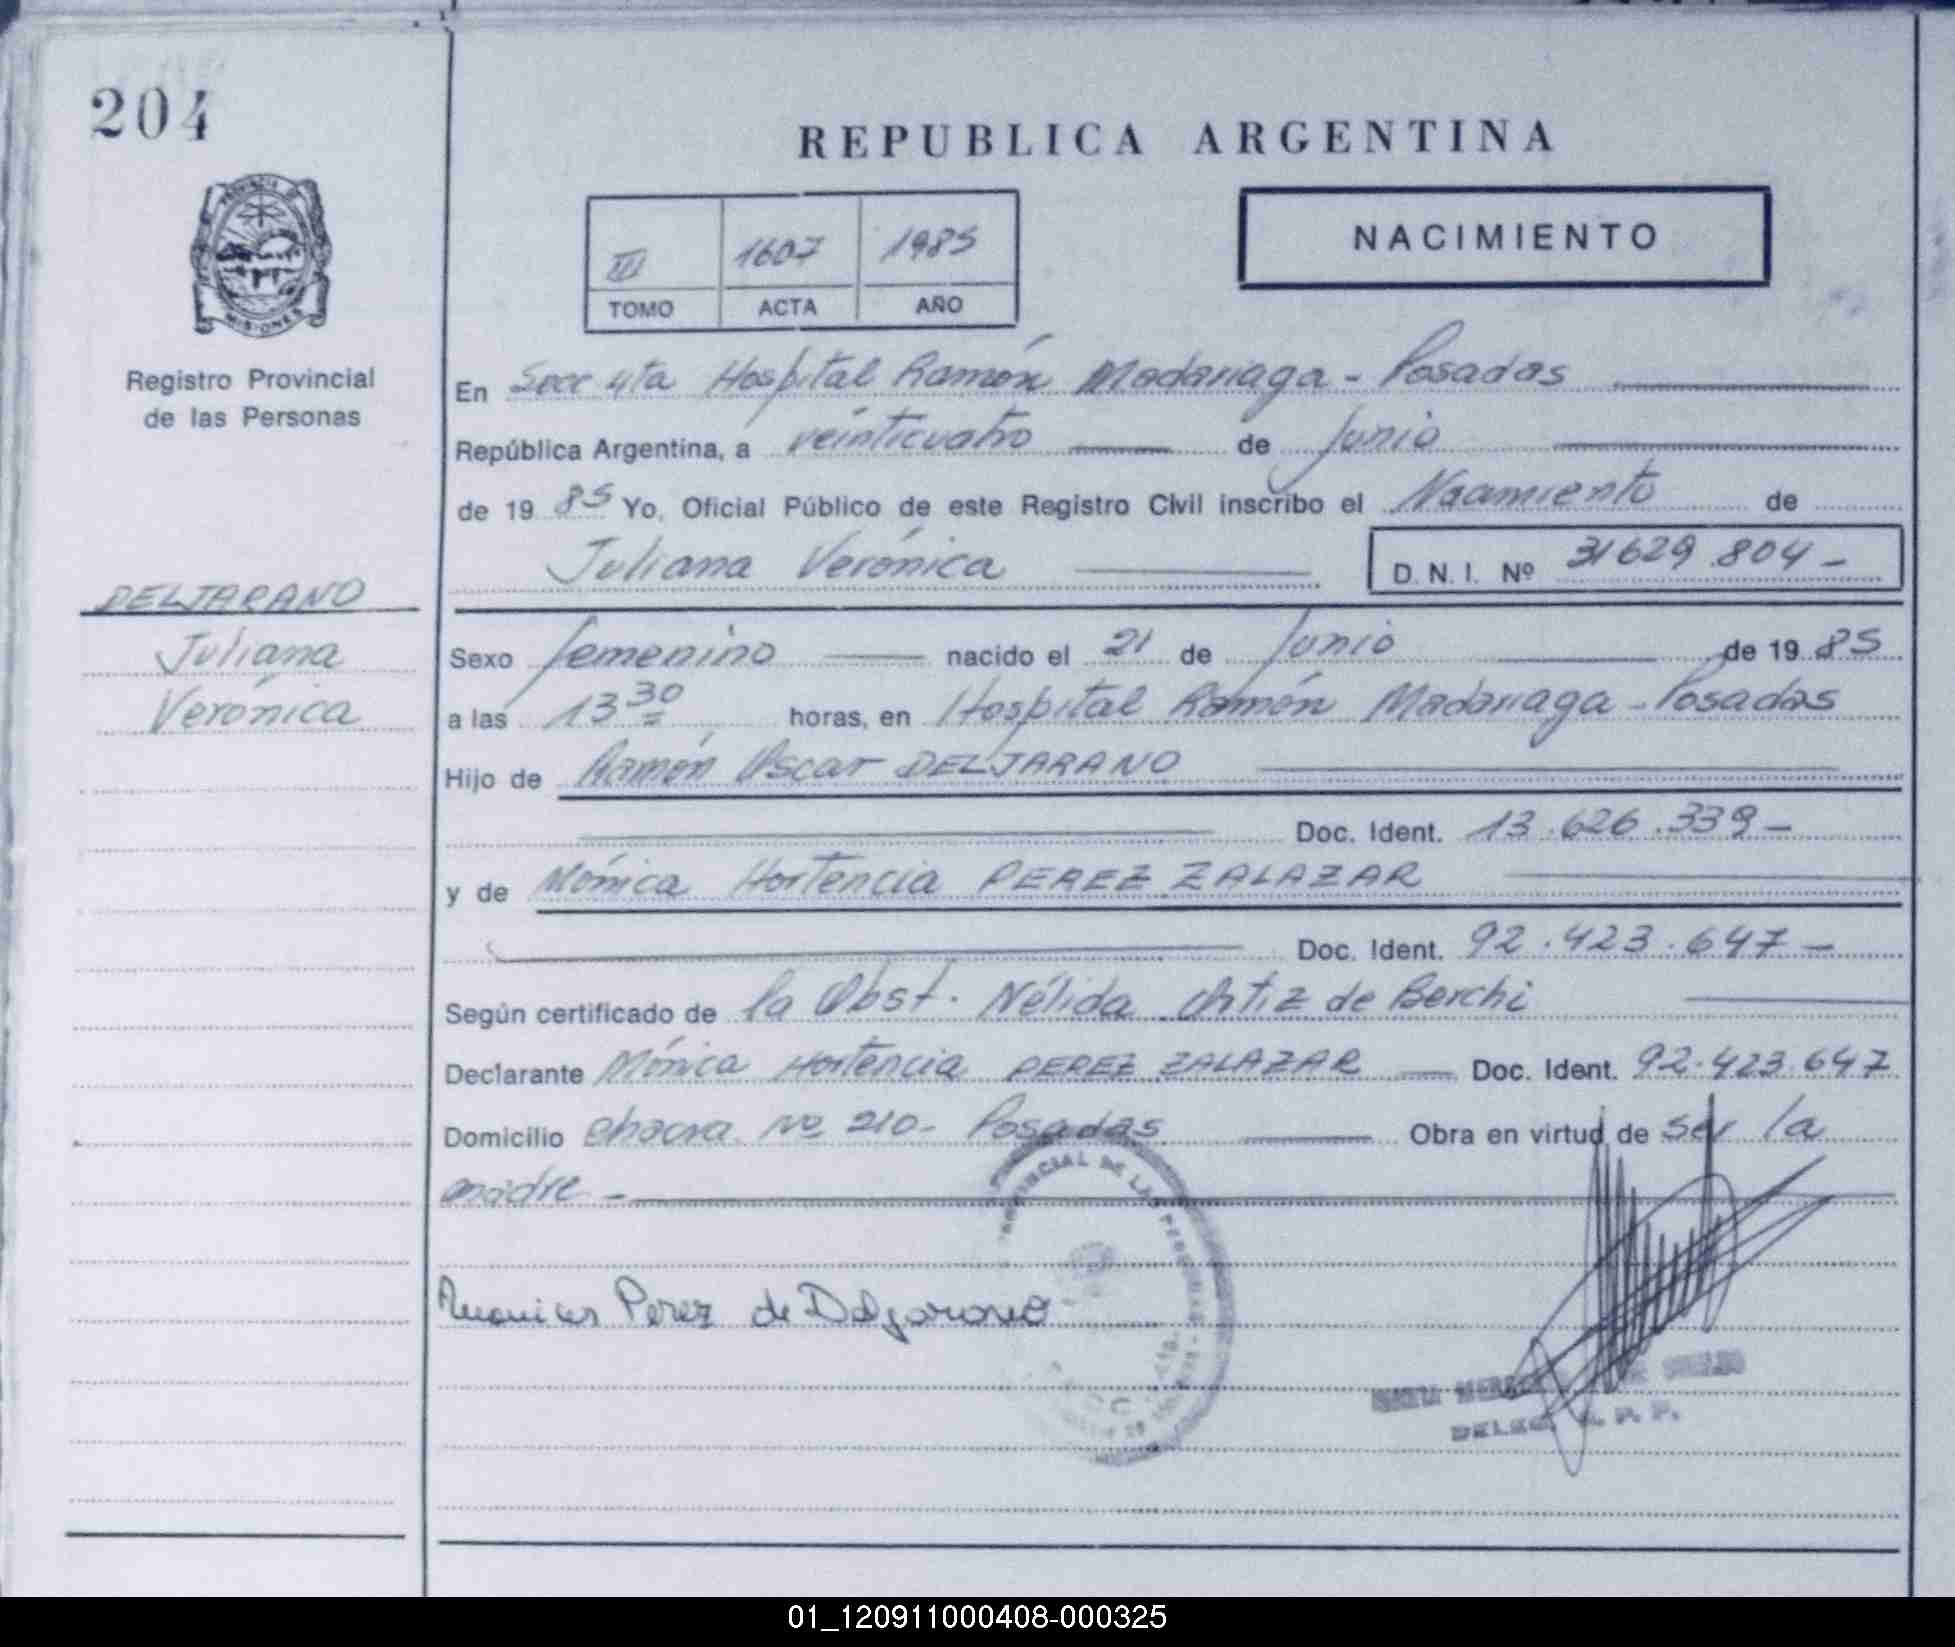 204
REPUBLICA ARGENTINA
PROVINCIA DE
MISIONES
III 1607 1985
TOMO ACTA AÑO
NACIMIENTO
Registro Provincial
de las Personas
En Secc 4ta Hospital Ramón Madariaga - Posadas
República Argentina, a veinticuatro de Junio
de 19 85 Yo, Oficial Público de este Registro Civil inscribo el Nacimiento de
Juliana Verónica D. N. I. Nº 31629.804-
DELJARANO
Juliana
Verónica
Sexo femenino nacido el 21 de Junio de 19 85
a las 13 30 horas, en Hospital Ramón Madariaga - Posadas
Hijo de Ramón Oscar DELJARANO
Doc. Ident. 13.626.339-
y de Mónica Hortencia PEREZ ZALAZAR
Doc. Ident. 92.423.647-
Según certificado de la Obst. Nélida Ortiz de Berchi
Declarante Mónica Hortencia PEREZ ZALAZAR Doc. Ident. 92.423.647
Domicilio Chacra Nº 210- Posadas Obra en virtud de ser la
madre -
DE LAS
Perez de Deljarano
DELEG. R. P. P.
01_120911000408-000325